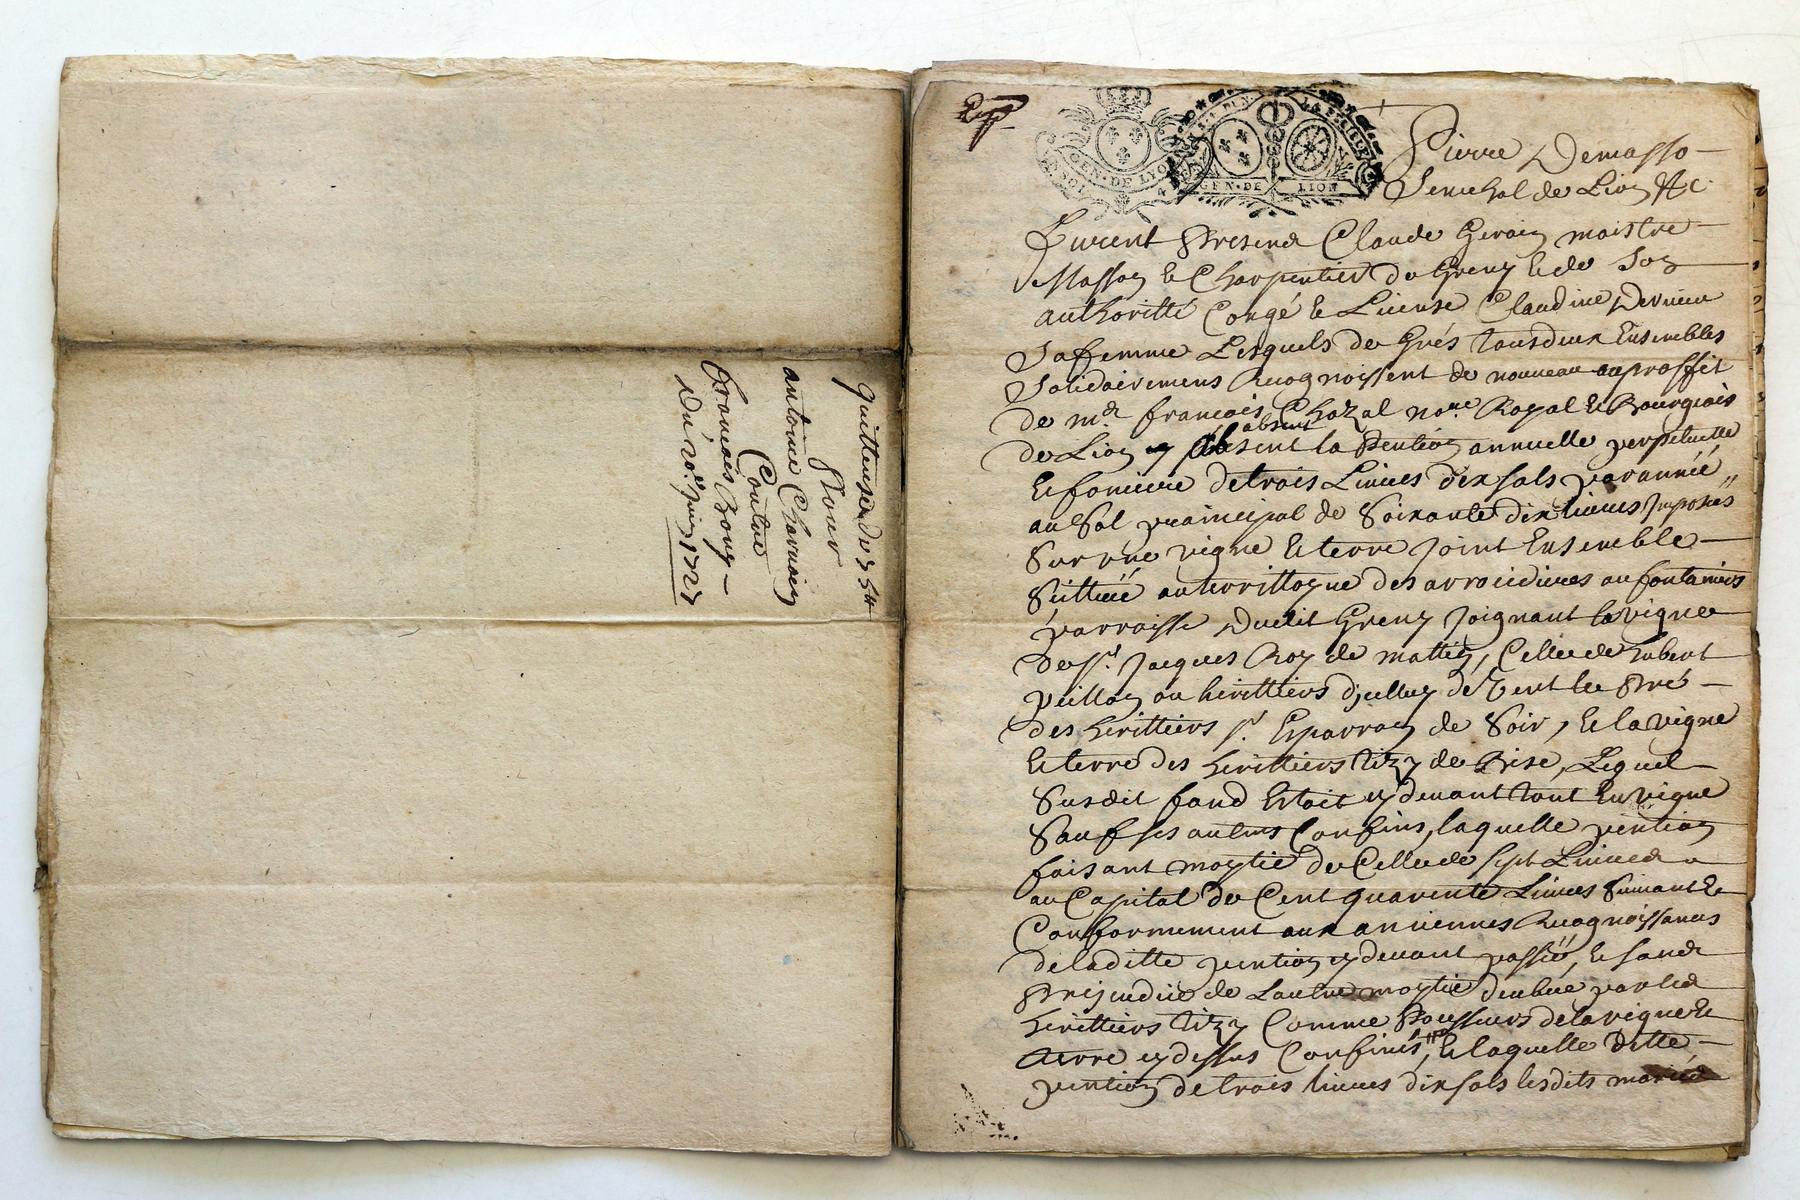 quittense de 75#
Pour
antoine Charvoin
Contre
François Bouy
Du 20.e juin 1727
GEN · DE LYON
GEN · DE LION
Pierre Demasso
Senechal de Lion &c
Furent Presens Claude Gervais maistre
Masson & Charpentier de Greny & de Son
authoritté Congé & License Claudine Dervieu
Sa femme Lesquels de Grés tous deux Ensembles
Solidairemens Recognoissent de nouveau au proffit
de m.e françois Chazal no.re Royal & Bourgeois
absent
de Lion y absent la Pention annuelle perpetuelle
& fonciere de trois Livres dix sols par année
au Sol principal de Soixante dix livres Imposés
Sur une vigne & terre Joint Ensemble
Scittuée au territtoyre des
parroisse Dudit Greny Joignant la vigne
de s.r Jacques Roy de mattin, Celle de hubert
ou herittiers d'jcelluy de Vent le Pré
des herittiers s.r Esparron de Soir, & la vigne
& terre des herittiers Tizy de Bise, Lequel
Susdit fond Estoit cydevant tout En vigne
Sauf ses autres Confins, laquelle pention
faisant moytié de Celle de sept Livres
au Capital de Cent quarente Livres Suivant &
Conformement aux anciennes Recognoissances
de laditte pention cydevant passée, & sans
Prejudice de Lautre moytié deube par les
herittiers Tizy Comme Possesseurs de la vigne &
terre cydessus Confinés, & laquelle ditte
pention de trois livres dix sols lesdits mariés